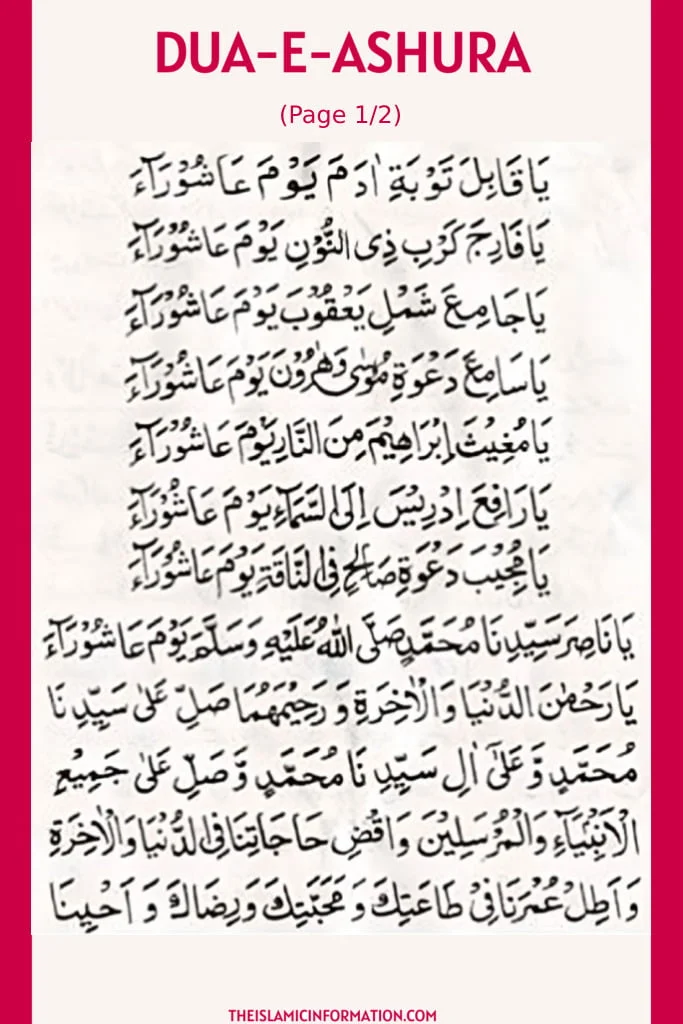 DUA-E-ASHURA
(Page 1/2)
يَا قَابِلَ تَوْبَةِ اٰدَمَ يَوْمَ عَاشُوْرَآءَ
يَا فَارِجَ كَرْبِ ذِى النُّوْنِ يَوْمَ عَاشُوْرَآءَ
يَا جَامِعَ شَمْلِ يَعْقُوْبَ يَوْمَ عَاشُوْرَآءَ
يَا سَامِعَ دَعْوَةِ مُوْسٰى وَهٰرُوْنَ يَوْمَ عَاشُوْرَآءَ
يَا مُغِيْثَ اِبْرَاهِيْمَ مِنَ النَّارِ يَوْمَ عَاشُوْرَآءَ
يَا رَافِعَ اِدْرِيْسَ اِلَى السَّمَآءِ يَوْمَ عَاشُوْرَآءَ
يَا مُجِيْبَ دَعْوَةِ صَالِحٍ فِى النَّاقَةِ يَوْمَ عَاشُوْرَآءَ
يَا نَاصِرَ سَيِّدِنَا مُحَمَّدٍ صَلَّى اللّٰهُ عَلَيْهِ وَسَلَّمَ يَوْمَ عَاشُوْرَآءَ
يَا رَحْمٰنَ الدُّنْيَا وَالْاٰخِرَةِ وَ رَحِيْمَهُمَا صَلِّ عَلٰى سَيِّدِنَا
مُحَمَّدٍ وَّ عَلٰٓى اٰلِ سَيِّدِ نَا مُحَمَّدٍ وَّ صَلِّ عَلٰى جَمِيْعِ
الْاَنْبِيَآءِ وَالْمُرْسَلِيْنَ وَاقْضِ حَاجَاتِنَا فِى الدُّنْيَا وَالْاٰخِرَةِ
وَ اَطِلْ عُمْرَنَا فِىْ طَاعَتِكَ وَ مَحَبَّتِكَ وَ رِضَاكَ وَ اَحْيِنَا
THEISLAMICINFORMATION.COM